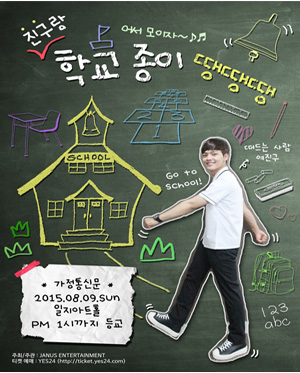 친구랑
어서 모이자~♪♬
학교 종이
땡땡땡
SCHOOL
떠드는 사람
여진구
GO TO
SCHOOL!
가정통신문
2015.08.09.sun
일지아트홀
PM 1시까지 등교
123
abc
주최/주관 : JANUS ENTERTAINMENT
티켓 예매 : YES24 (http://ticket.yes24.com)